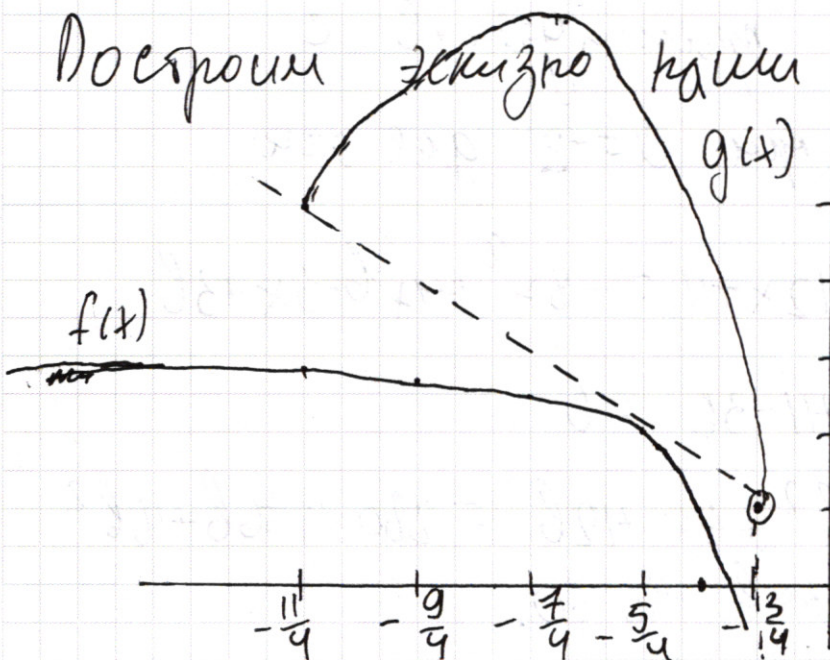 Достроим эскизно наши
g(x)
f(x)
-11/4 -9/4 -7/4 -5/4 -3/4